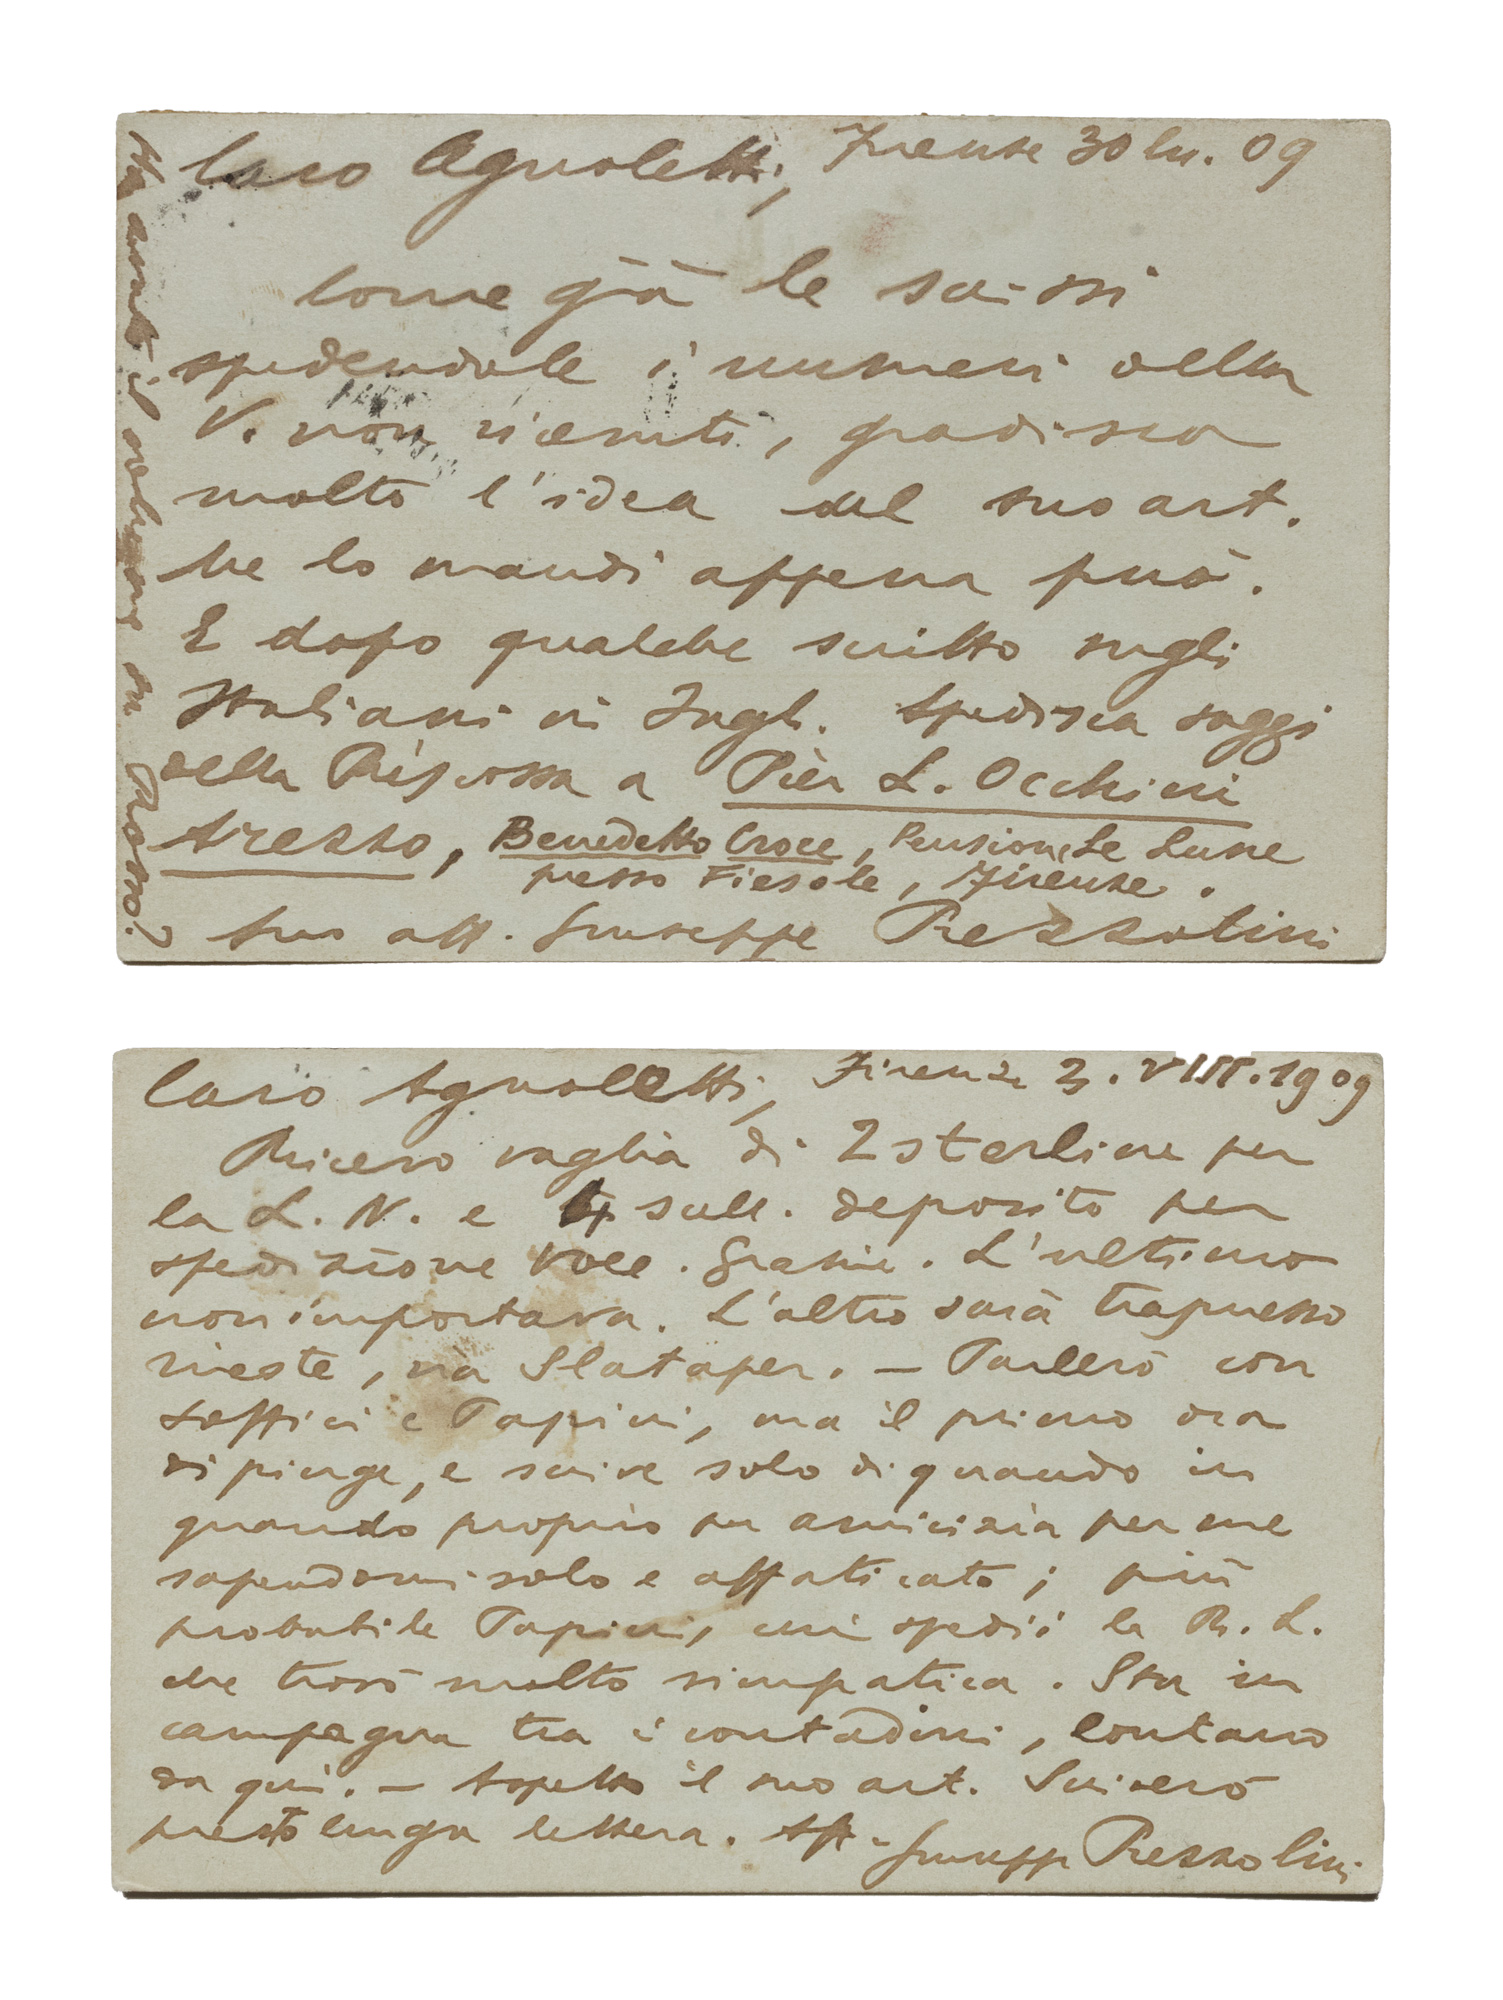 Caro Agnoletti, Firenze 30 lu. 09
Come già le scrissi
spedendole i numeri della
V. non ricevuti, gradisco
molto l'idea del suo art.
Me lo mandi appena può.
E dopo qualche scritto sugli
Italiani in Ingh. Spedisca saggi
della Riscossa a Pier L. Occhini
Arezzo, Benedetto Croce, Pensione Le Lune
presso Fiesole, Firenze.
Suo aff. Giuseppe Prezzolini
Ha avuto il volume di Rosso?
Caro Agnoletti, Firenze 3. VIII. 1909
Ricevo vaglia di 2 sterline per
la L. N. e 4 scell. deposito per
spedizione Voce. Grazie. L'ultimo
non importava. L'altro sarà trasmesso
Trieste, via Slataper. — Parlerò con
Soffici e Papini, ma il primo ora
dipinge, e scrive solo di quando in
quando proprio per amicizia per me
sapendomi solo e affaticato; più
probabile Papini, cui spedii la R. L.
che trovò molto simpatica. Sta in
campagna tra i contadini, lontano
da qui. — Aspetto il suo art. Scriverò
presto lunga lettera. Aff. Giuseppe Prezzolini